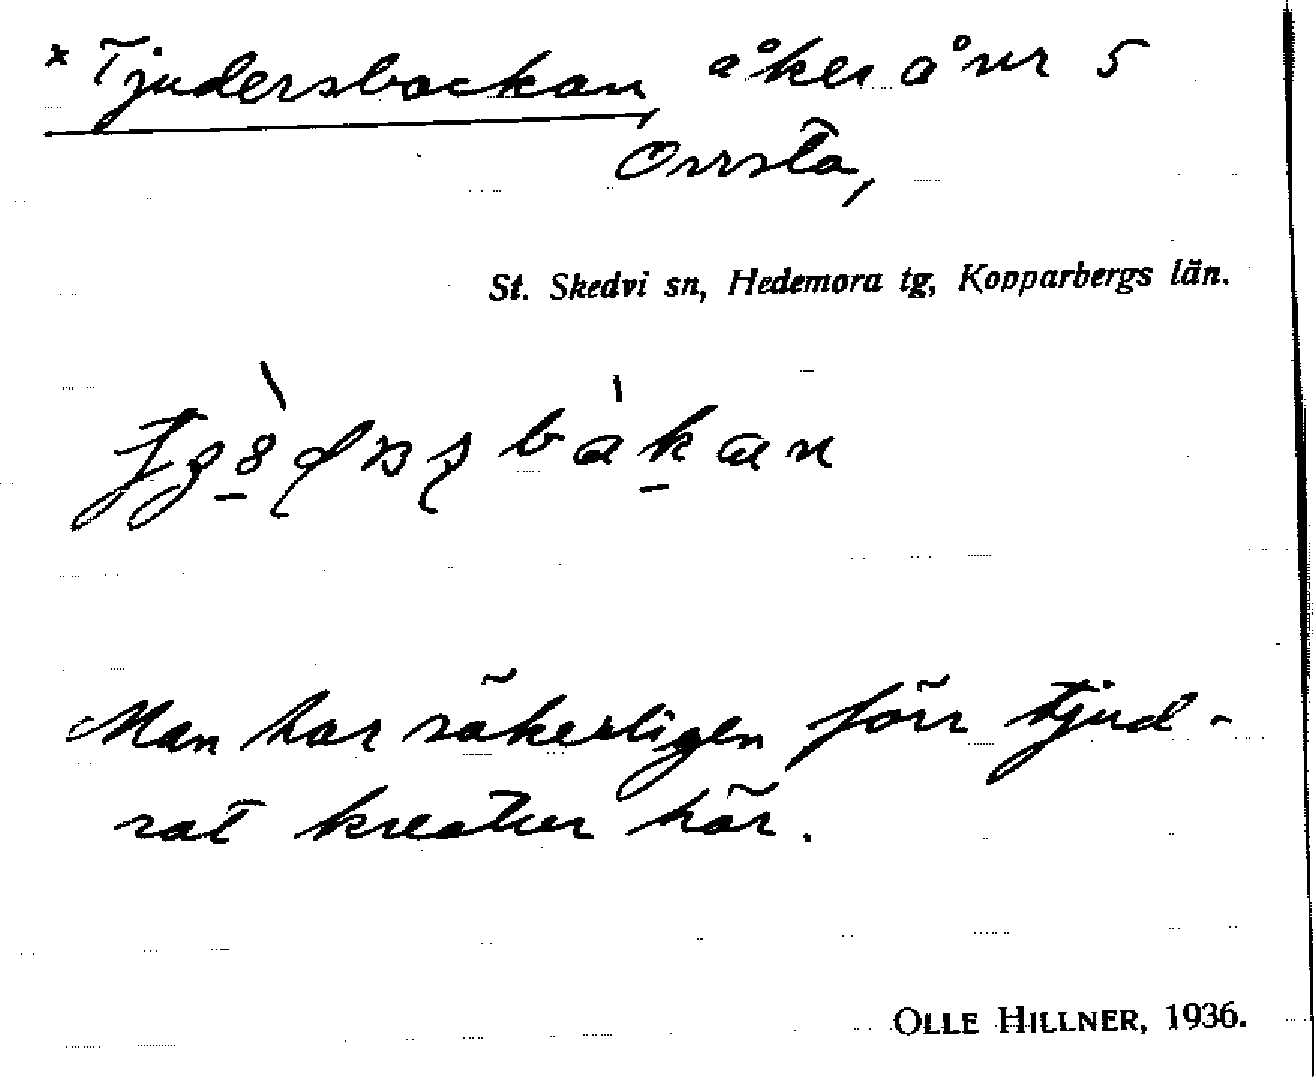 * Tjudersbackan, åker å nr 5
Orrsta,
St. Skedvi sn, Hedemora tg, Kopparbergs län.
Man har säkerligen förr tjud-
rat kreatur här.
OLLE HILLNER, 1936.